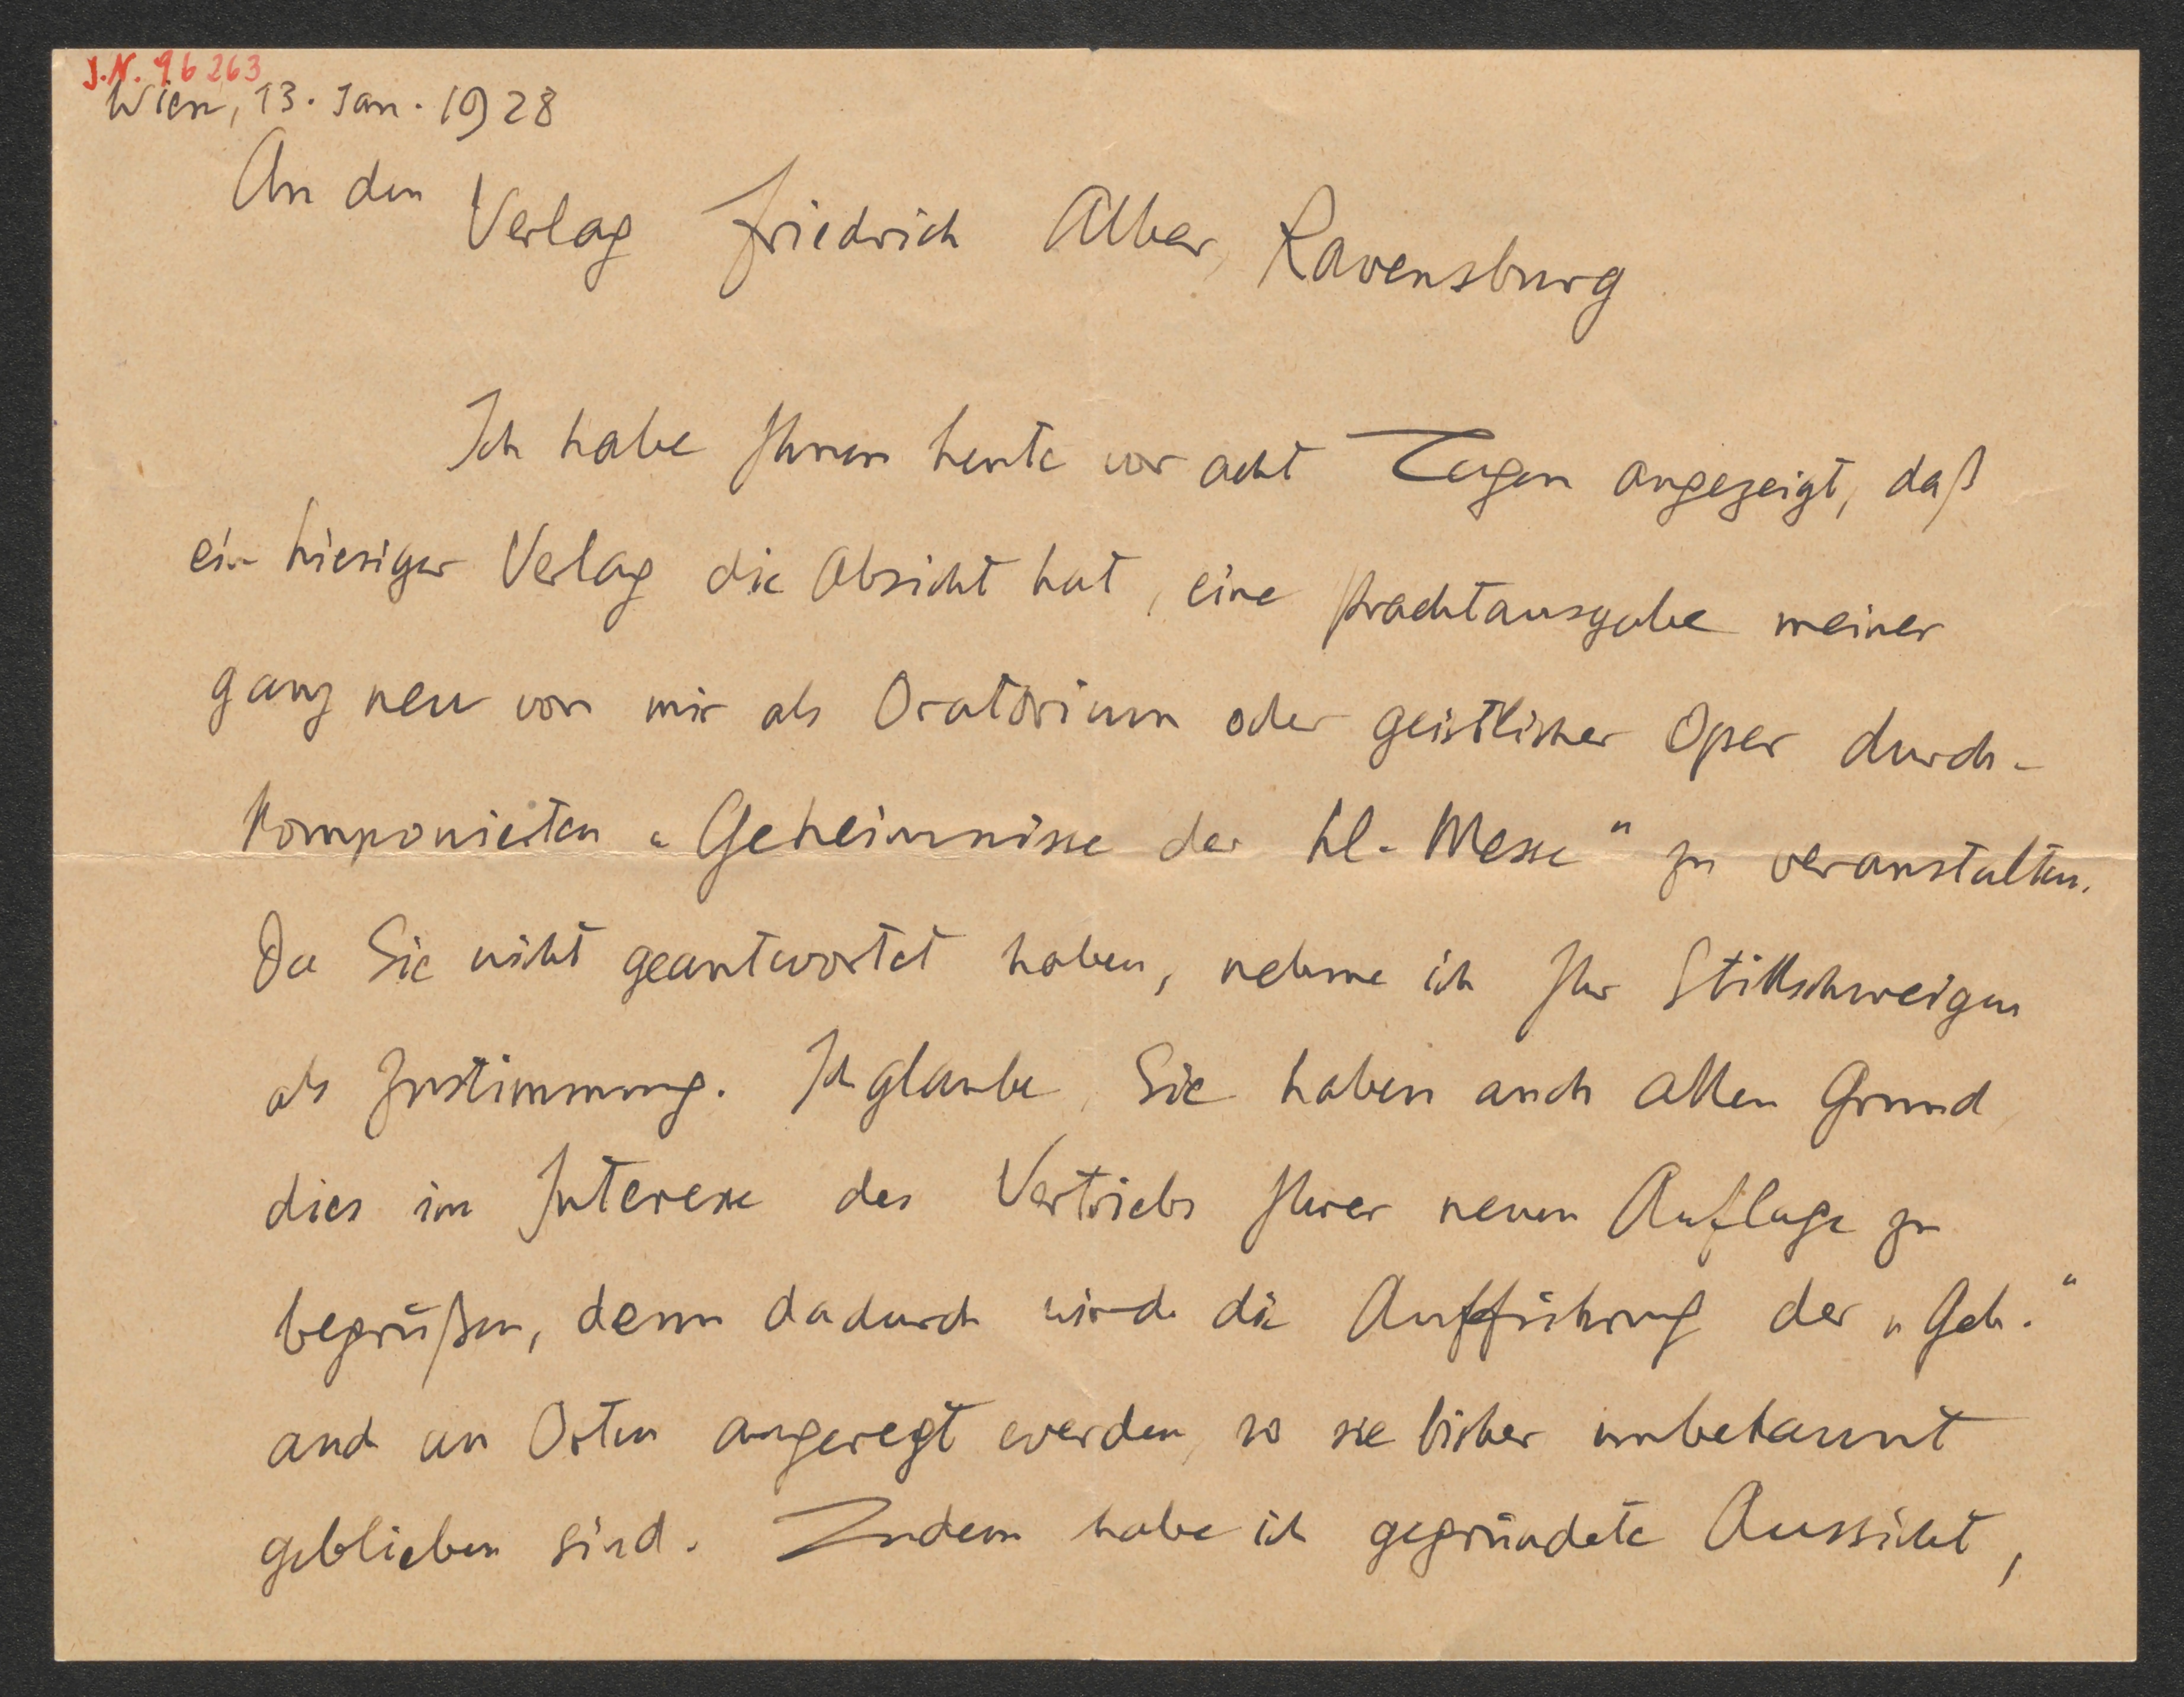 J.N. 96263
Wien, 13. Jan. 1928
An den Verlag Friedrich Alber, Ravensburg
Ich habe Ihnen heute vor acht Tagen angezeigt, daß
ein hiesiger Verlag die Absicht hat, eine Prachtausgabe meiner
ganz neu von mir als Oratorium oder geistlicher Oper durch-
komponierten „Geheimnisse der hl. Messe" zu veranstalten.
Da Sie nicht geantwortet haben, nehme ich Ihr Stillschweigen
als Zustimmung. Ich glaube, Sie haben auch allen Grund,
dies im Interesse des Vertriebs Ihrer neuen Auflage zu
begrüßen, denn dadurch wird die Aufführung der „Geh."
auch an Orten angeregt werden, wo sie bisher unbekannt
geblieben sind. Zudem habe ich gegründete Aussicht,